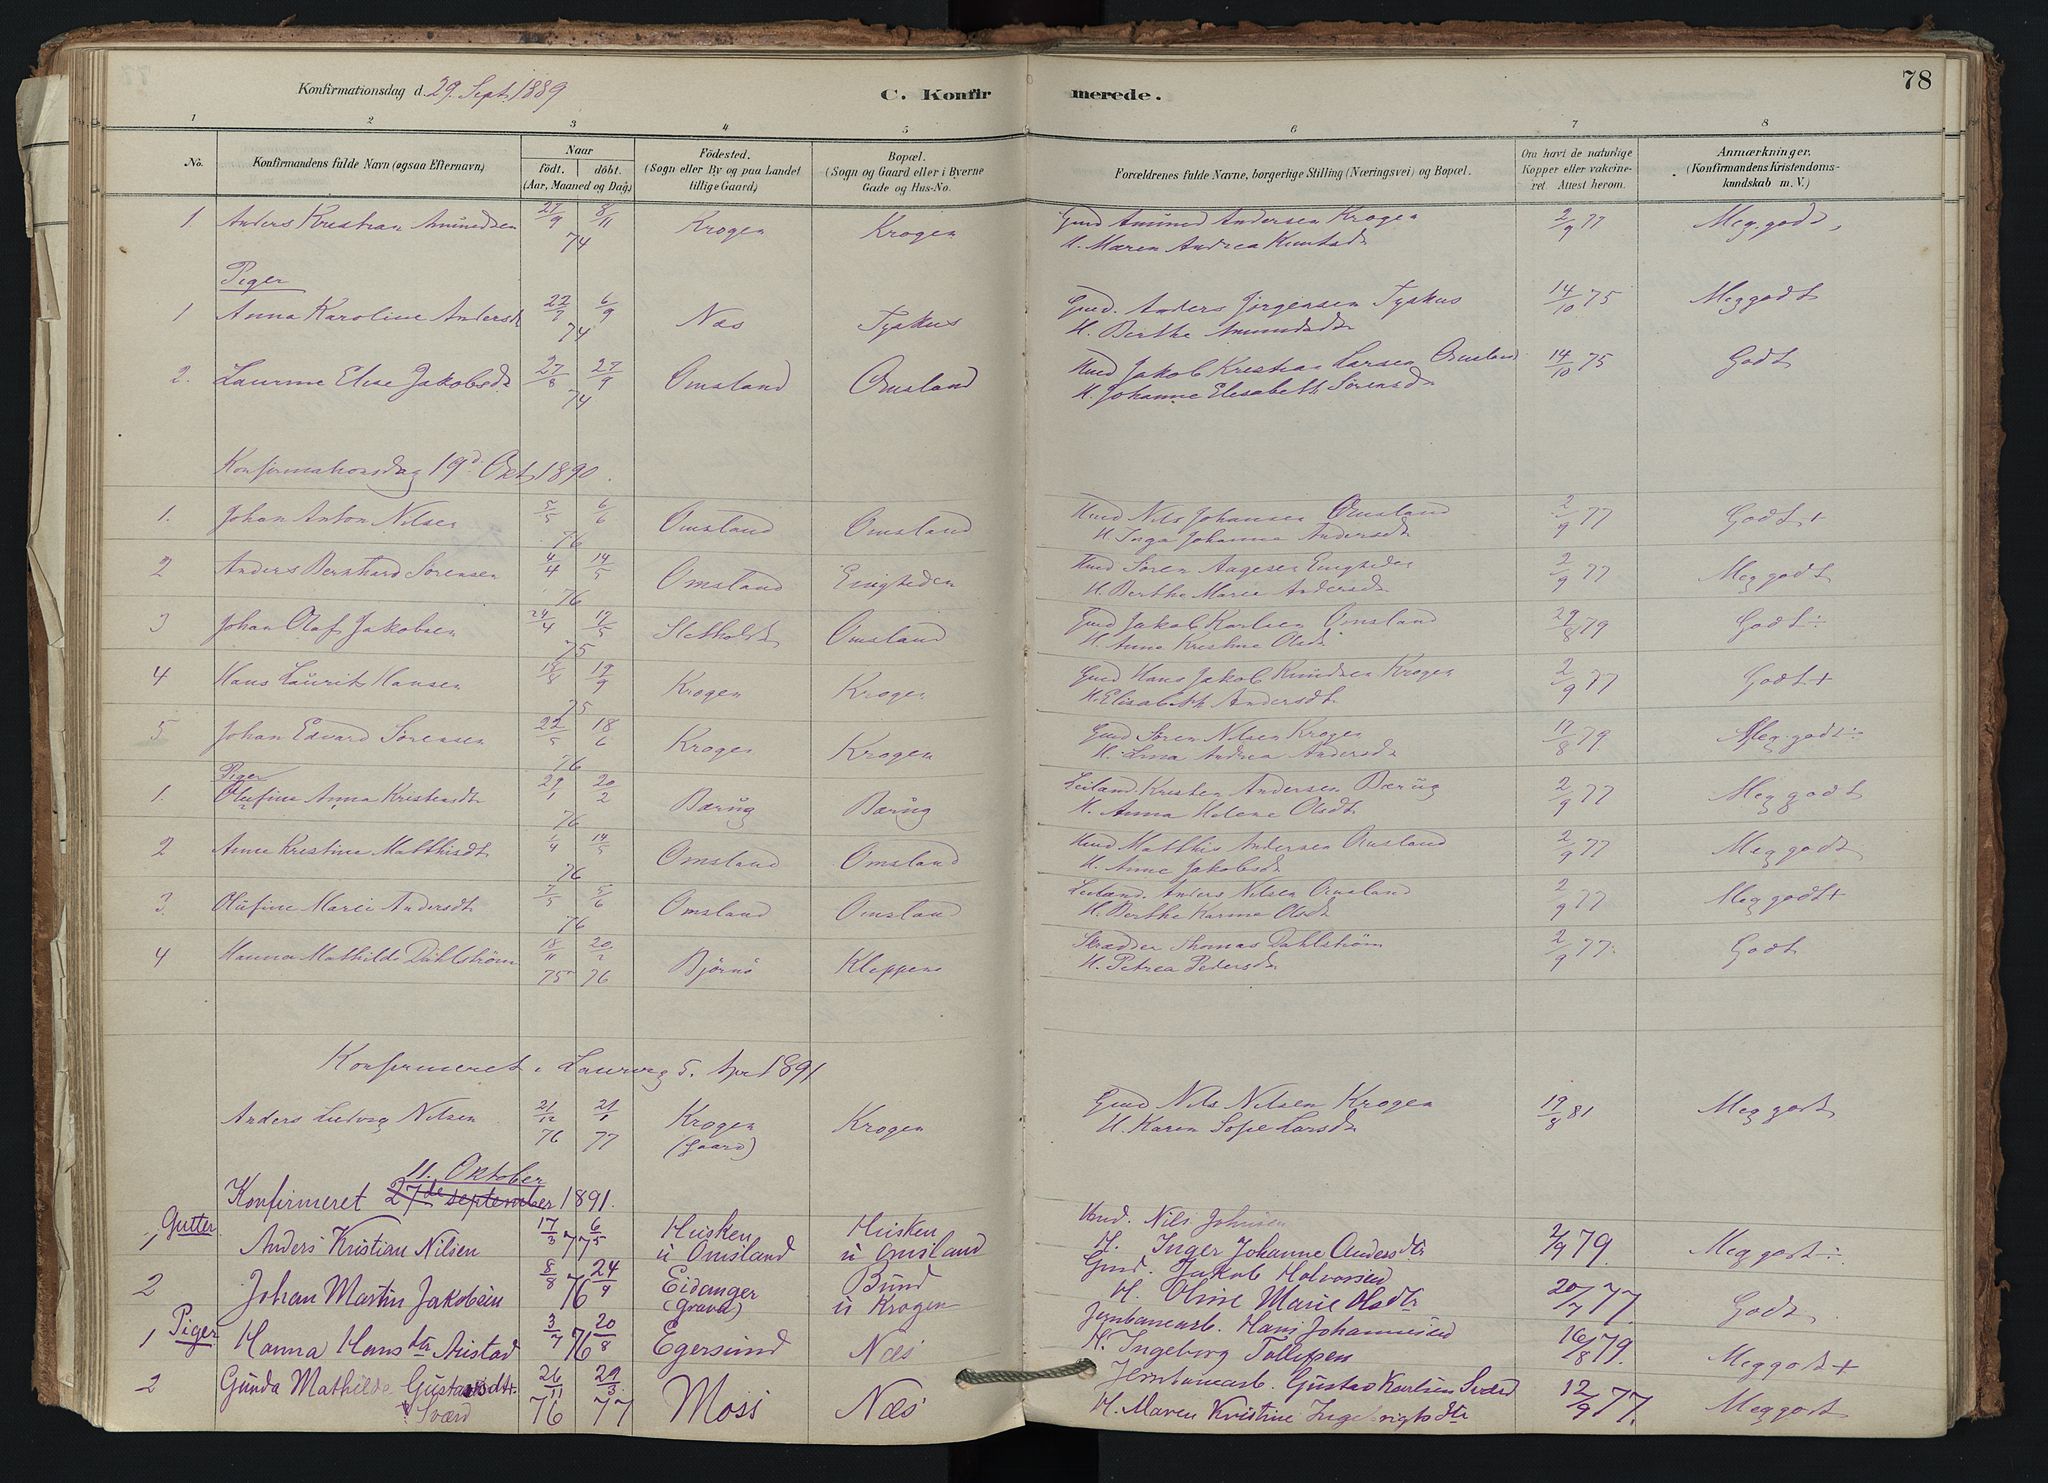 78
Konfirmationsdag d. 29. Sept 1889
C. Konfirmerede.
1 2 3 4 5 6 7 8
No.
Konfirmandens fulde Navn (ogsaa Efternavn)
Naar
födt. döbt.
(Aar, Maaned og Dag)
Födested.
(Sogn eller By og paa Landet tillige Gaard)
Bopæl.
(Sogn og Gaard eller i Byerne Gade og Hus-No.
Forældrenes fulde Navne, borgerlige Stilling (Næringsvei) og Bopæl.
Om havt de naturlige Kopper eller vakcineret. Attest herom.
Anmærkninger.
(Konfirmandens Kristendomskundskab m. V.)
1. Anders Kristian Amundsen 27/9 8/11 74 Krogen Krogen Gmd Amund Andersen Krogen 2/9 77 Meg. godt,
H. Maren Andrea Knutsdt
Piger
1 Anna Karoline Andersdt 22/7 6/9 74 Næs Tyskus Gmd. Anders Jörgensen Tyskus 14/10 75 Meg godt
H. Berthe Amundsdt
2. Laurine Elise Jakobsdt 27/8 27/9 74 Omsland Omsland Hmd Jakob Kristian Larsen Omsland 14/10 75 Godt
H. Johanne Elisabeth Sörensdt
Konfirmationsdag 19d Okt 1890.
1. Johan Anton Nilsen 5/5 6/6 76 Omsland Omsland Hmd Nils Johansen Omsland 2/9 77 Godt +
H Inga Johanna Andersdt
2 Anders Bernhard Sørensen 4/4 14/5 76 Omsland Enigheden Hmd Søren Aagesen Enigheden 2/9 77 Meg godt
H. Berthe Marie Andersdt
3 Johan Olaf Jakobsen 24/4 17/5 75 Stetholdt Omsland Gmd Jakob Karlsen Omsland 29/8 79 Godt ÷
H. Anne Kristine Olsdt
4 Hans Laurits Hansen 15/8 19/9 75 Krogen Krogen Gmd Hans Jakob Knudsen Krogen 2/9 77 Godt +
H. Elisabeth Andersdt
5 Johan Edvard Sørensen 22/5 18/6 76 Krogen Krogen Gmd Søren Nilsen Krogen 17/8 79 Meg. godt ÷
H. Lina Andrea Andersdt
Piger
1. Olufine Anna Kristensdt 29/1 20/2 76 Bærug Bærug Leiland. Kristen Andersen Bærug 2/9 77 Meg godt
H. Anna Helene Olsdt
2 Anne Kristine Matthisdt 1/4 14/5 76 Omsland Omsland Hmd Matthis Andersen Omsland 2/9 77 Meg godt
H. Anne Jakobsdt
3. Olufine Marei Andersdt 7/5 5/6 76 Omsland Omsland Leiland. Anders Nilsen Omsland 2/9 77 Meg godt +
H. Berthe Karine Olsdt
4 Hanna Mathilde Dahlstrøm 18/11 75 20/2 76 Bjørnø Kleppene Skrædder Thomas Dahlstrøm 2/9 77. Godt
H. Petrea Pedersdt
Konfirmeret i Laurvig 5. Apr 1891
Anders Ludvig Nilsen 21/12 76 21/1 77 Krogen (Gaard) Krogen Gmd Nils Nilsen Krogen 19/8 81 Meg godt
H. Karen Sofie Larsdt
11. Oktober
Konfirmeret 27de september 1891.
Gutter
1 Anders Kristian Nilsen 17/3 6/5 77 Husken u Omsland Husken u Omsland Hmd. Nils Johnsen 2/9 79. Meg godt ÷
H. Inger Johanne Andersdtr
2 Johan Martin Jakobsen 8/8 24/9 76 Eidanger (Grava) Bund u Krogen Gmd. Jakob Halvorsen 20/7 77. Godt
H. Oline Marie Olsdtr
Piger
1 Hanna Hansdtr Austad 3/7 20/8 76 Egersund Næs Jernbanearb. Hans Johannesen 16/8 79. Meg godt +
H. Ingeborg Tollefsen
2 Gunda Mathilde Gustavsdtr. Sværd 26/11 76 29/3 77 Moss Næs Jernbanearb. Gustav Karlsen Sværd 12/9 77. Meg godt
H. Maren Kristine Ingebrigtsdtr